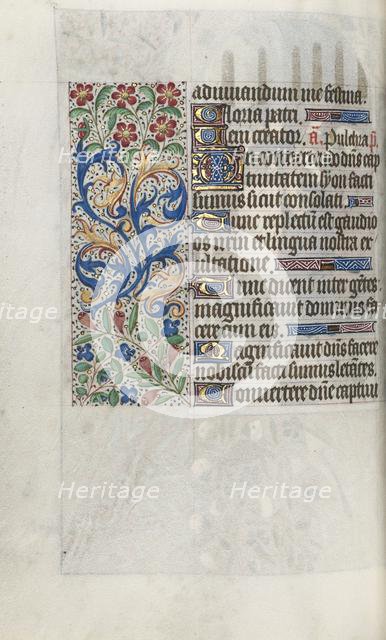 adiuuandum me festina.
Gloria patri
Mem creator. a. Pulchra p.
In conuertendo dns cap
tiuitatem syon facti
sumus sicut consolati
Tunc repletum est gaudio
os nrm et lingua nostra ex
ultatione.
Tunc dicent inter gētes
magnificauit dominus fa
cere cum eis.
Magnificauit dns facere
nobiscum facti sumus letātes.
Conuertere dne captiui
Heritage Heritage
Heritage Heritage
Heritage Heritage